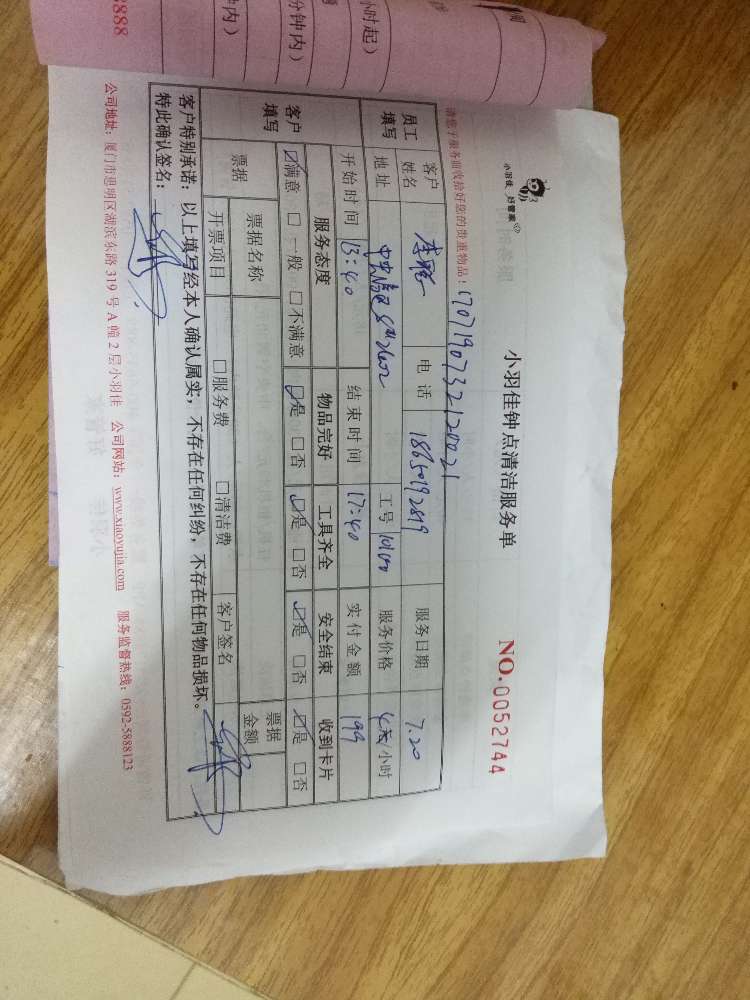 小羽佳 好管家
小羽佳钟点清洁服务单 NO.0052744
请您于服务前收拾好您的贵重物品! 1707190732120021
员工填写 客户姓名 李 电话 18650192819 服务日期 7.20
地址 中央 2602 工号 服务价格 /小时
开始时间 13:40 结束时间 17:40 实付金额 199
客户填写 服务态度 物品完好 工具齐全 安全结束 收到卡片
☑满意 □一般 □不满意 ☑是 □否 ☑是 □否 ☑是 □否 ☑是 □否
票据 票据名称 票据金额
开票项目 □服务费 □清洁费 客户签名
客户特别承诺:以上填写经本人确认属实,不存在任何纠纷,不存在任何物品损坏。
特此确认签名:
公司地址:厦门市思明区湖滨东路 319 号 A 幢 2 层小羽佳 公司网站:www.xiaoyujia.com 服务监督热线:0592-5888123
小时起)
分钟内)
钟内)
8888